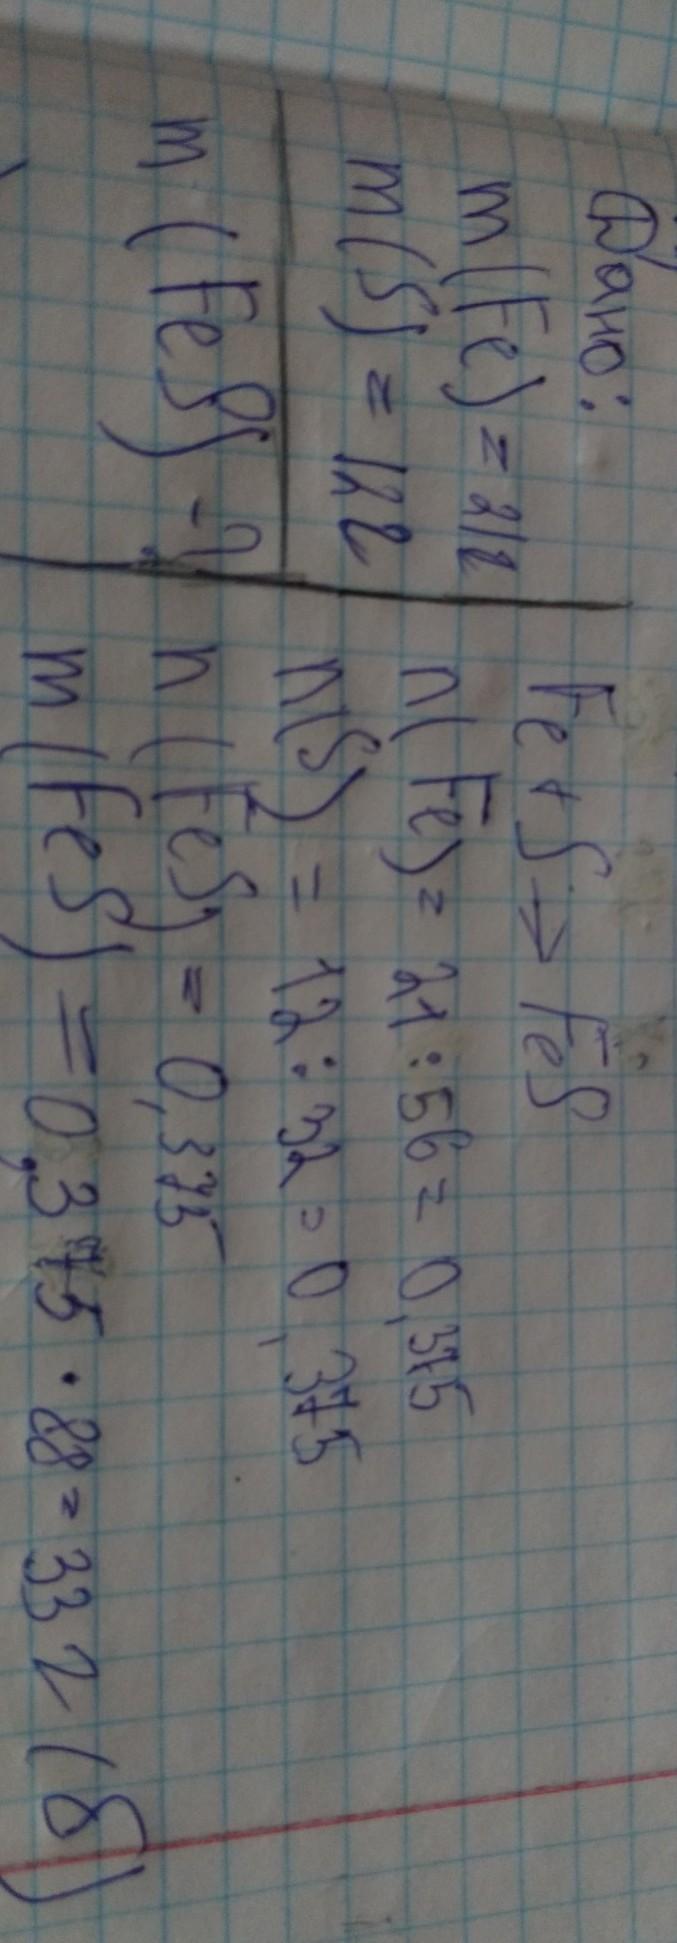 Дано:
m(Fe) = 21г
m(S) = 12г
m(FeS) - ?
Fe + S → FeS
n(Fe) = 21 : 56 = 0,375
n(S) = 12 : 32 = 0,375
n(FeS) = 0,375
m(FeS) = 0,375 · 88 = 33 г (б)